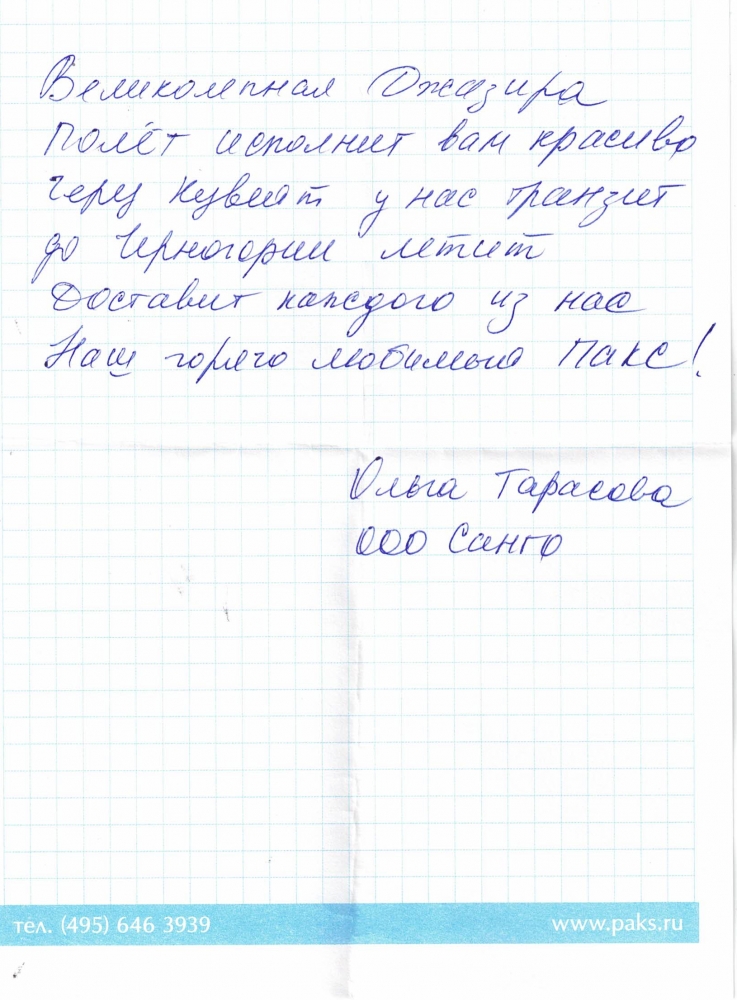 Великолепная Джазира
Полёт исполнит вам красиво
Через Кувеит у нас транзит
до Черногории летит
Доставит каждого из нас
Наш горячо любимый Пакс!
Ольга Тарасова
ООО Санго
тел. (495) 646 3939
www.paks.ru